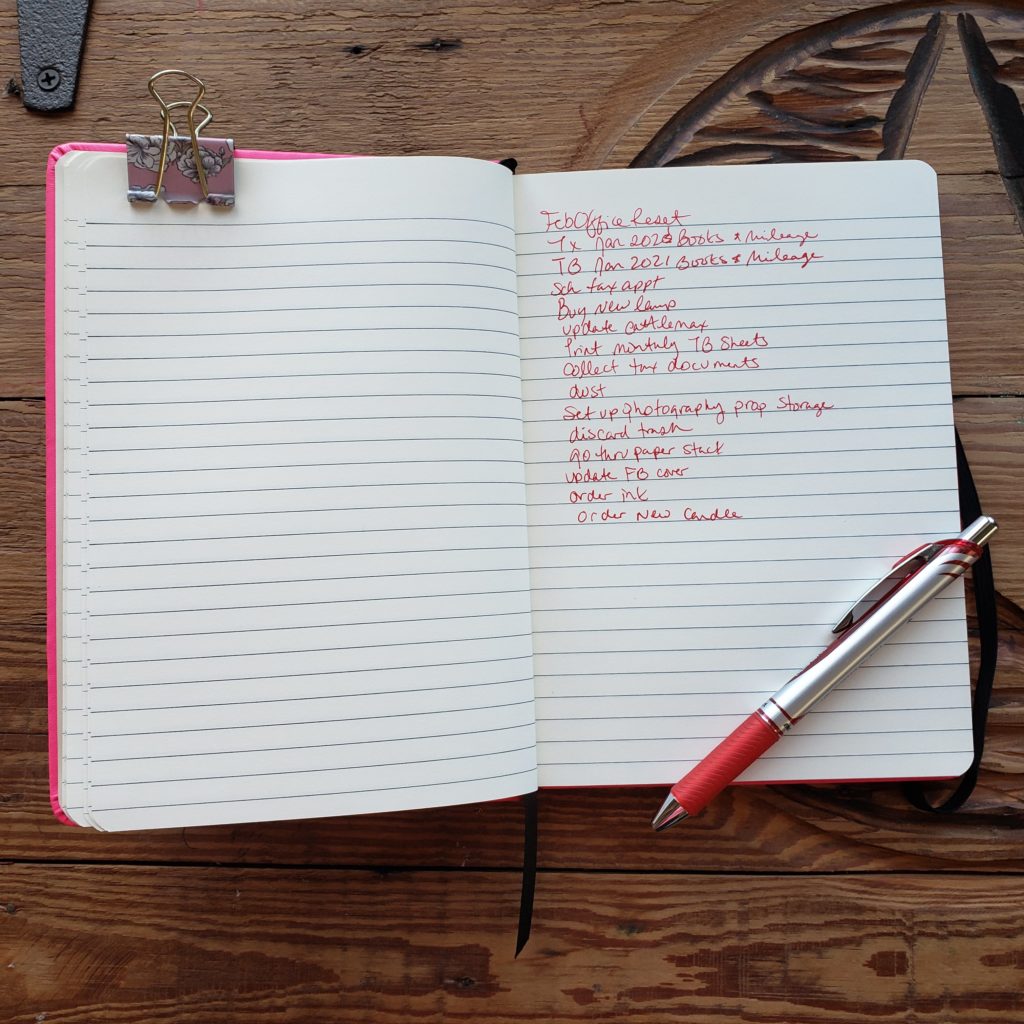 Feb Office Reset
Tx Jan 2020 Books & Mileage
TB Jan 2021 Books & Mileage
Sch tax appt
Buy New lamp
update cattlemax
Print monthly TB Sheets
Collect tax documents
dust
Set up photography prop Storage
discard trash
go thru paper stack
update FB cover
order ink
Order New Candle